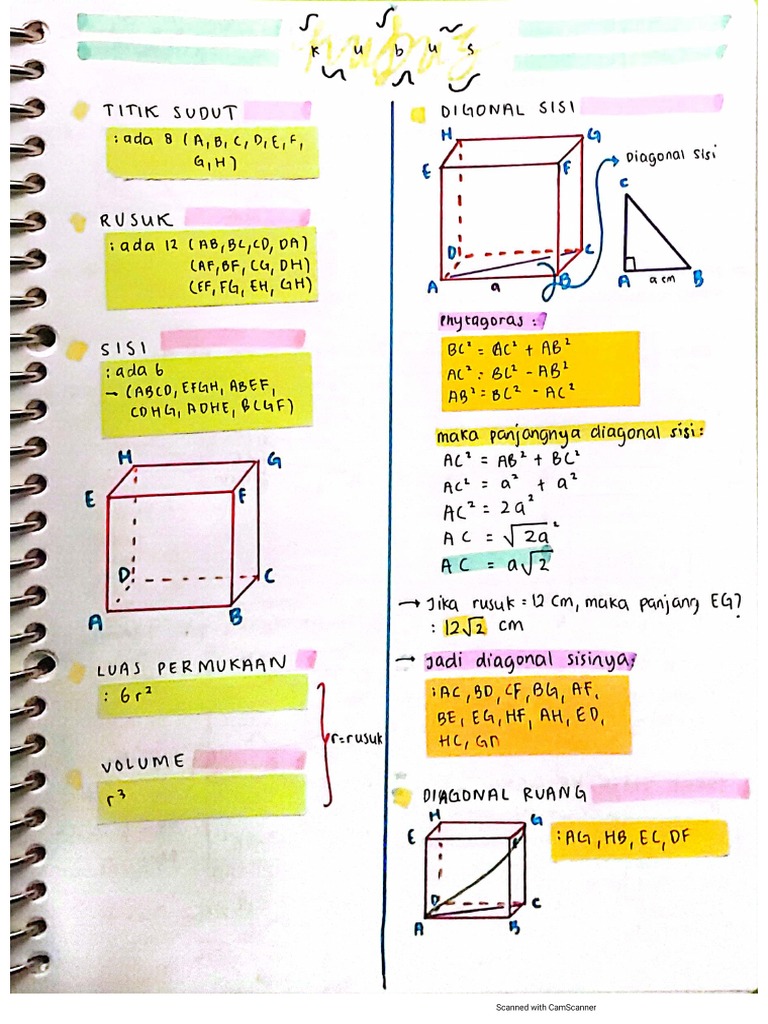 kubus
TITIK SUDUT
: ada 8 (A, B, C, D, E, F,
G, H)
RUSUK
: ada 12 (AB, BC, CD, DA)
(AF, BF, CG, DH)
(EF, FG, EH, GH)
SISI
: ada 6
→ (ABCD, EFGH, ABEF,
CDHG, ADHE, BCGF)
H
G
E
F
D
C
A
B
LUAS PERMUKAAN
: 6r²
r=rusuk
VOLUME
r³
DIGONAL SISI
H
G
E
F
→ Diagonal sisi
D
C
A
a
B
C
A
a cm
B
Phytagoras :
BC² = AC² + AB²
AC² = BC² - AB²
AB² = BC² - AC²
maka panjangnya diagonal sisi:
AC² = AB² + BC²
AC² = a² + a²
AC² = 2a²
AC = √2a²
AC = a√2
→ Jika rusuk = 12 cm, maka panjang EG?
: 12√2 cm
→ Jadi diagonal sisinya:
: AC, BD, CF, BG, AF,
BE, EG, HF, AH, ED,
HC, GD
DIAGONAL RUANG
H
G
E
F
: AG, HB, EC, DF
D
C
A
B
Scanned with CamScanner